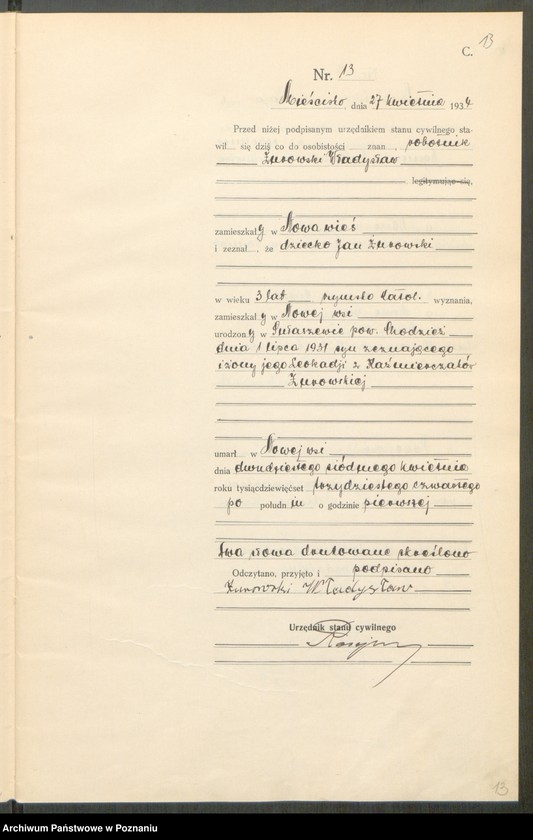 C. 13
Nr. 13
Mieścisko, dnia 27 kwietnia 1934
Przed niżej podpisanym urzędnikiem stanu cywilnego sta-
wił się dziś co do osobistości znan, robotnik
Żurowski Władysław
legitymując się,
zamieszkały w Nowa wieś
i zeznał, że dziecko Jan Żurowski
w wieku 3 lat rzymsko katol. wyznania,
zamieszkały w Nowej wsi
urodzony w pow. Chodzież
dnia 1 lipca 1931 syn zeznającego
i żony jego Leokadji z Kaźmierczaków
Żurowskiej
umarł w Nowej wsi
dnia dwudziestego siódmego kwietnia
roku tysiącdziewięćset trzydziestego czwartego
po południu o godzinie pierwszej
Dwa słowa drukowane skreślono
Odczytano, przyjęto i podpisano
Żurowski Władysław
Urzędnik stanu cywilnego
13
Archiwum Państwowe w Poznaniu